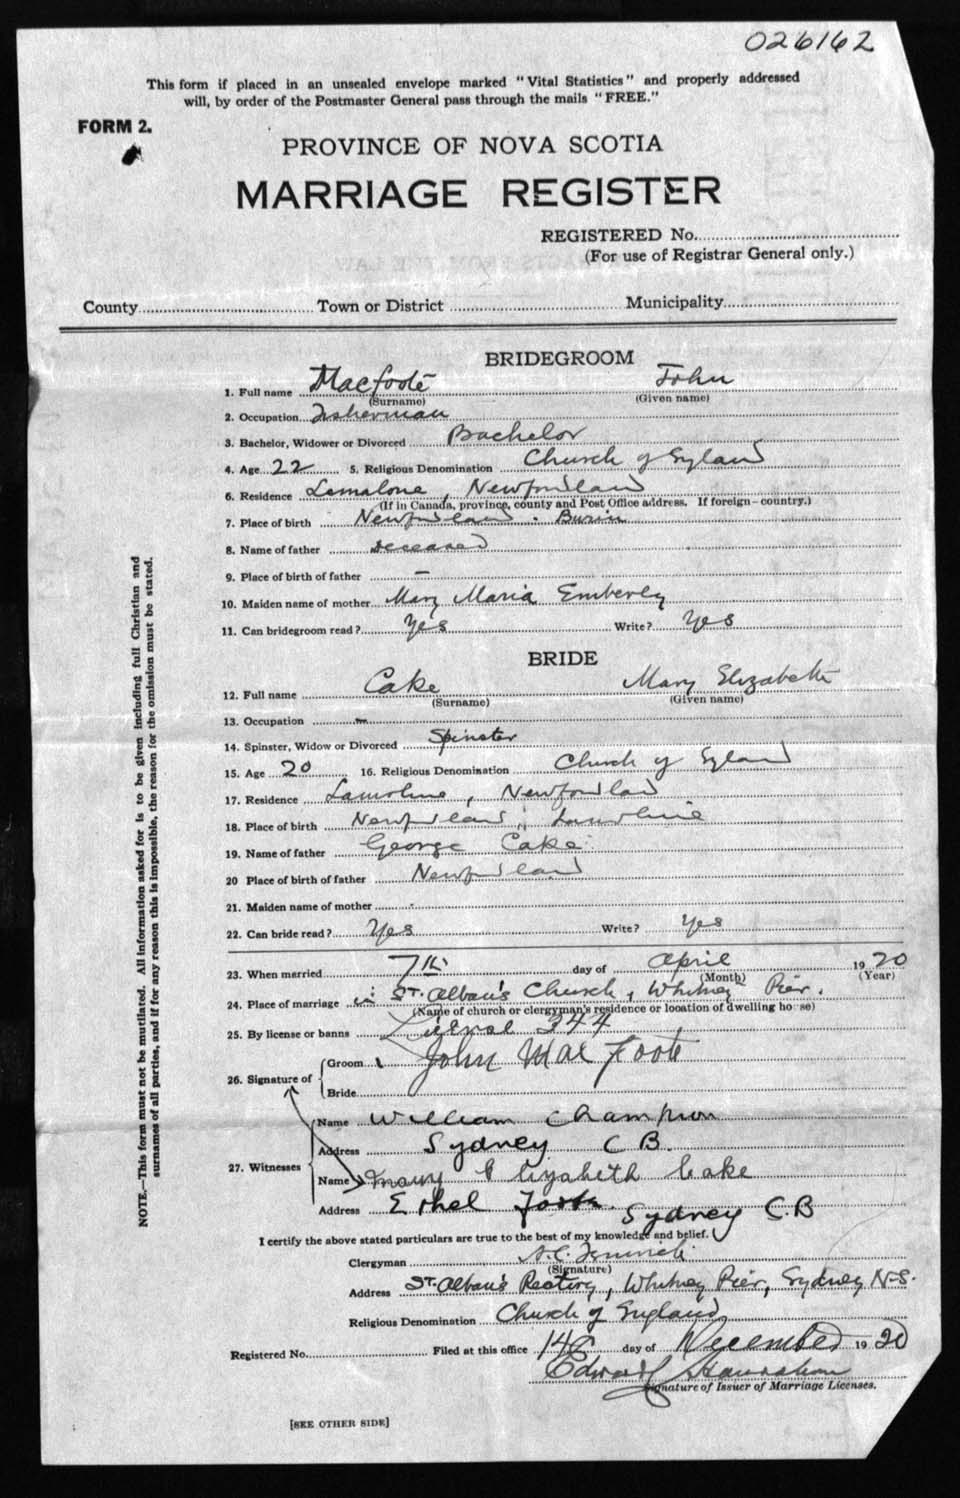 026162
This form if placed in an unsealed envelope marked "Vital Statistics" and properly addressed
will, by order of the Postmaster General pass through the mails "FREE."
FORM 2.
PROVINCE OF NOVA SCOTIA
MARRIAGE REGISTER
REGISTERED No.
(For use of Registrar General only.)
County Town or District Municipality
BRIDEGROOM
1. Full name MacFoote John
(Surname) (Given name)
2. Occupation Fisherman
3. Bachelor, Widower or Divorced Bachelor
4. Age 22 5. Religious Denomination Church of England
6. Residence Lamalone, Newfoundland
(If in Canada, province, county and Post Office address. If foreign—country.)
7. Place of birth Newfoundland. Burin
8. Name of father deceased
9. Place of birth of father —
10. Maiden name of mother Mary Maria Emberly
11. Can bridegroom read? Yes Write? Yes
BRIDE
12. Full name Cake Mary Elizabeth
(Surname) (Given name)
13. Occupation —
14. Spinster, Widow or Divorced Spinster
15. Age 20 16. Religious Denomination Church of England
17. Residence Lamoline, Newfoundland
18. Place of birth Newfoundland, Lamoline
19. Name of father George Cake
20 Place of birth of father Newfoundland
21. Maiden name of mother
22. Can bride read? Yes Write? Yes
23. When married 7th day of April 1920
(Month) (Year)
24. Place of marriage in St. Alban's Church, Whitney Pier.
(Name of church or clergyman's residence or location of dwelling house)
25. By license or banns 344
26. Signature of Groom John Mac Foote
Bride
27. Witnesses
Name William Champion
Address Sydney C B.
Name Mary Elizabeth Cake
Address Ethel Foote. Sydney C.B
I certify the above stated particulars are true to the best of my knowledge and belief.
Clergyman A.C.
(Signature)
Address St. Alban's Rectory, Whitney Pier, Sydney N.S.
Religious Denomination Church of England
Registered No. Filed at this office 14 day of December 1920
Edward
Signature of Issuer of Marriage Licenses.
[SEE OTHER SIDE]
NOTE.—This form must not be mutilated. All information asked for is to be given including full Christian and
surnames of all parties, and if for any reason this is impossible, the reason for the omission must be stated.